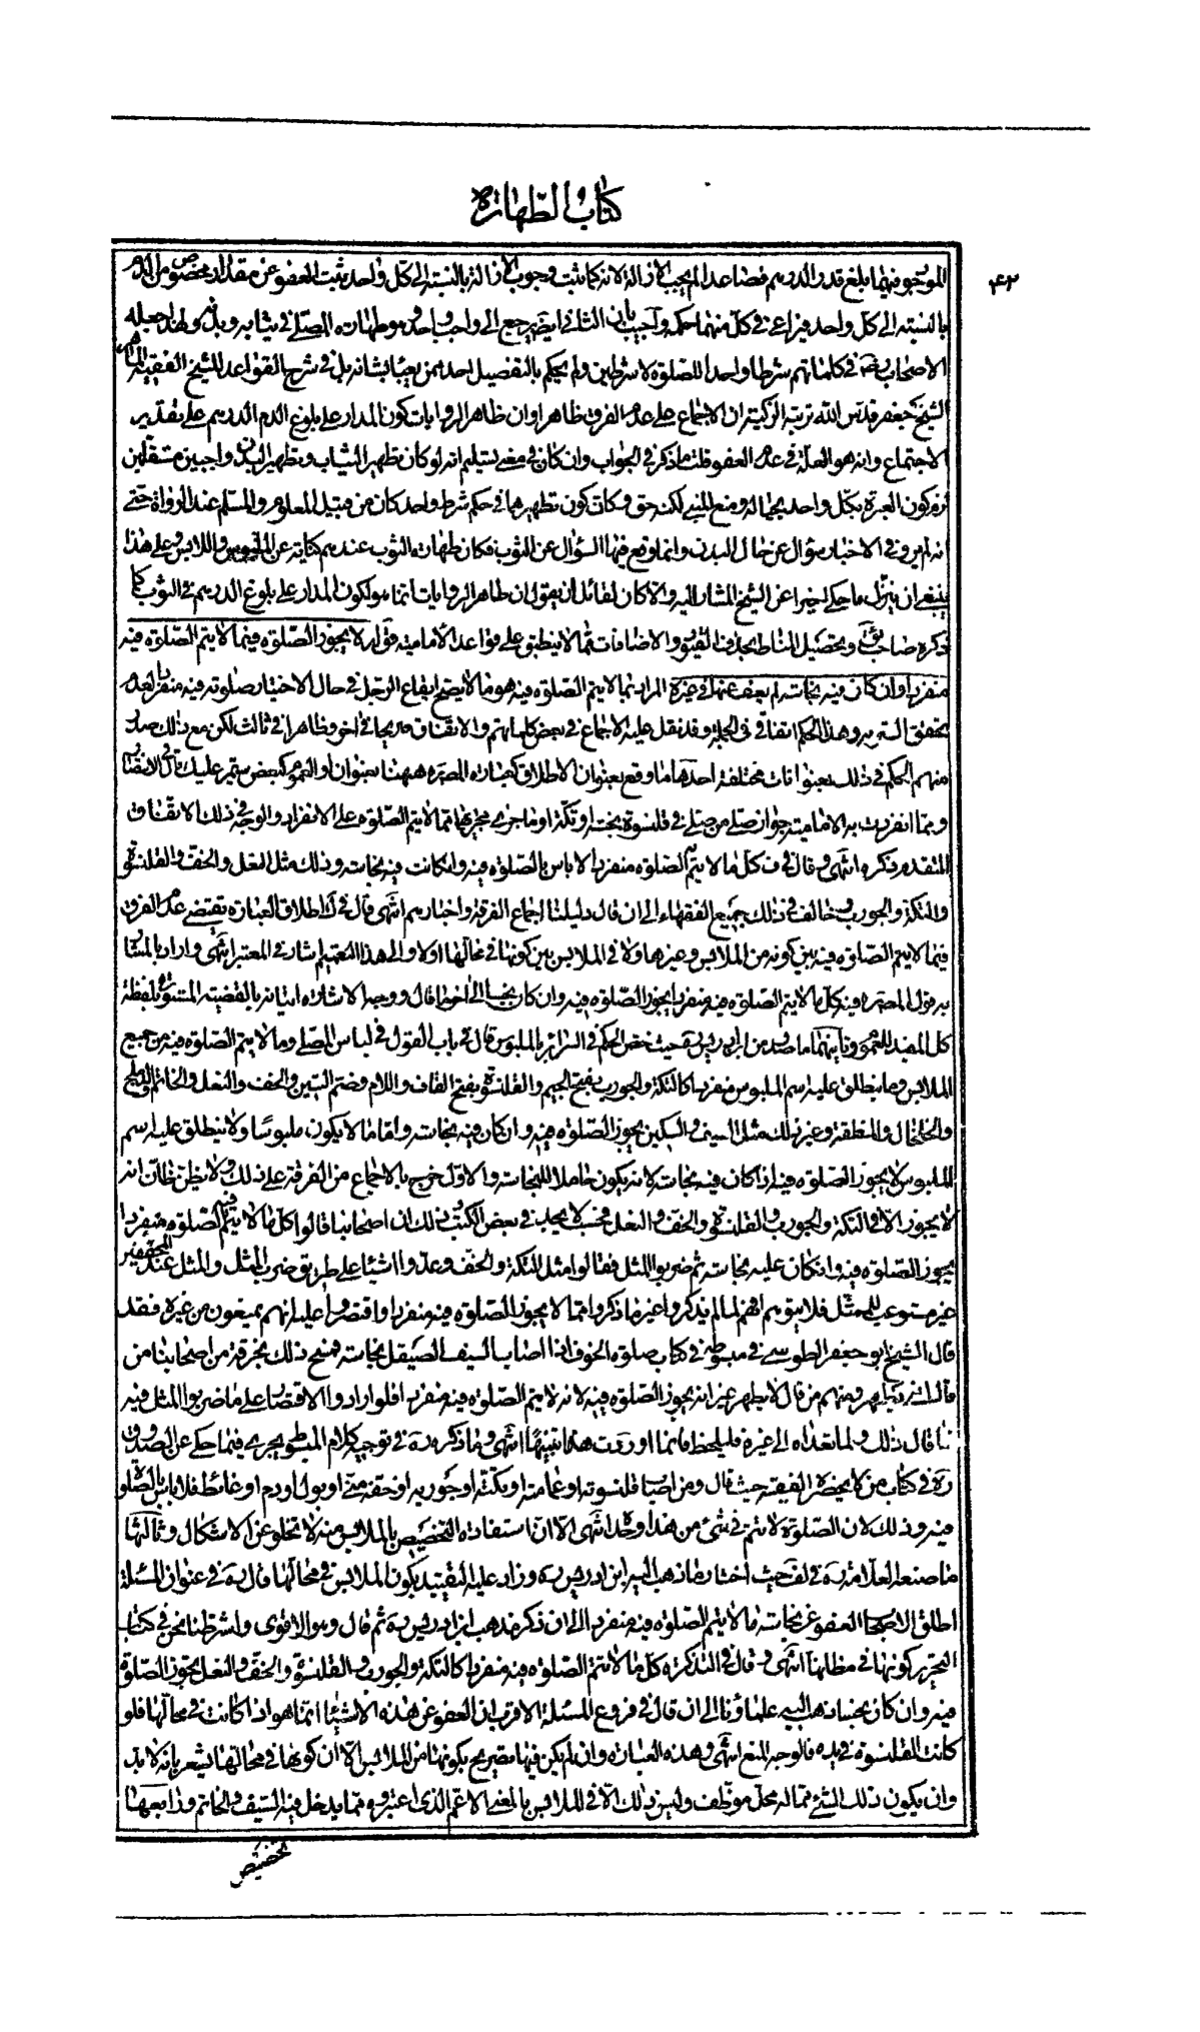 كتاب الطهارة
۴۲
الموجود فيهما يبلغ قدر الدرهم فصاعدا لم يجب الازالة لانه كما ثبت وجوب الازالة بالنسبة الى كل واحد ثبت العفو عن مقدار مخصوص من الدم
بالنسبة الى كل واحد فيراعى في كل منهما حكمه واجيب بان الثاني ايضا يرجع الى واجب واحد وهو طهارة المصلي في ثيابه وبدنه ولهذا جعله
الاصحاب رض في كلماتهم شرطا واحدا للصلوة لا شرطين ولم يحكم بالتفصيل احد ممن يعبأ بشانه بل في شرح القواعد للشيخ الفقيه الماهر
الشيخ جعفر قدس الله تربته الزكية ان الاجماع على عدم الفرق ظاهرا وان ظاهر الروايات كون المدار على بلوغ الدم الدرهم على تقدير
الاجتماع وانه هو العلة في عدم العفو قلت ما ذكر في الجواب وان كان في معنى تسليم انه لو كان تطهير الثياب وتطهير البدن واجبين مستقلين
لزم كون العبرة بكل واحد بحياله ومنع المبنى لكنه حق وكان كون تطهيرهما في حكم شرط واحد كان من قبيل المعلوم والمسلم عند الرواة حتى
انه لم يرد في الاخبار سؤال عن حال البدن وانما وقع فيها السؤال عن الثوب فكان طهارة الثوب عندهم كناية عن الملبوس واللابس وعلى هذا
ينبغي ان ينزل ما حكى اخيرا عن الشيخ المشار اليه والا كان لقائل ان يقول ان ظاهر الروايات انما هو كون المدار على بلوغ الدرهم في الثوب كما
ذكره صاحب ئق وتحصيل المناط بحذف القيود والاضافات مما لا ينطبق على قواعد الامامية قوله لا يجوز الصلوة فيما لا يتم الصلوة فيه
منفردا وان كان فيه نجاسة لم يعف عنها في غيره المراد بما لا يتم الصلوة فيه هو ما لا يصح ايقاع الرجل في حال الاختيار صلوته فيه منفردا لعدم
تحقق الستر به وهذا الحكم اتفاقي في الجملة وقد نقل عليه الاجماع في بعض كلماتهم والاتفاق صريحا في اخر وظاهرا في ثالث لكن مع ذلك صدر
منهم الحكم في ذلك بعنوانات مختلفة احدها ما وقع بعنوان الاطلاق كعبارة المصره هيهنا بعنوان او العموم كبعض ستمر عليك قال في الانتصار
ومما انفردت به الامامية جواز صلوة من صلى في قلنسوة نجسة او تكة او ما جرى مجراهما مما لا يتم الصلوة على الانفراد والوجه في ذلك الاتفاق
المتقدم ذكره انتهى وقال في ف كل ما لا يتم الصلوة منفردا لا باس بالصلوة فيه وان كانت فيه نجاسة وذلك مثل النعل والخف والقلنسوة
والتكة والجورب وخالف في ذلك جميع الفقهاء الى ان قال دليلنا اجماع الفرقة واخبارهم انتهى قال في ك اطلاق العبارة يقتضي عدم الفرق
فيما لا يتم الصلوة فيه بين كونه من الملابس وغيرها ولا في الملابس بين كونها في محالها اولا والى هذا التعميم اشار في المعتبر انتهى واراد بالمشار
به قول المصره فيه كل ما لا يتم الصلوة فيه منفردا يجوز الصلوة فيه وان كان نجسا الى اخر ما قال ووجه الاشارة اتيانه بالقضية المسورة بلفظة
كل المفيد للعموم وثانيها ما صدر من ابن ادريس ره حيث خص الحكم في السرائر بالملبوس قال في باب القول في لباس المصلي وما لا يتم الصلوة فيه من جميع
الملابس وما ينطلق عليه اسم الملبوس منفردا كالتكة والجورب بفتح الجيم والقلنسوة بفتح القاف واللام وضم السين والخف والنعل والخاتم والدملج
والخلخال والمنطقة وغير ذلك مثل السيف والسكين يجوز الصلوة فيه وان كان فيه نجاسة واما ما لا يكون ملبوسا ولا ينطلق عليه اسم
الملبوس لا يجوز الصلوة فيه اذا كان فيه نجاسة لانه يكون حاملا للنجاسة والاول خرج بالاجماع من الفرقة على ذلك ولا يظن ظان انه
لا يجوز الا في التكة والجورب والقلنسوة والخف والنعل فحسب لما يجد في بعض الكتب وذلك ان اصحابنا قالوا كل ما لا يتم الصلوة فيه منفردا
يجوز الصلوة فيه وان كان عليه نجاسة ثم ضربوا المثل فقالوا مثل التكة والخف وعدوا اشياء على طريق ضرب المثل والمثل عند المحققين
غير مستوعب للممثل فلا يتوهم انهم لما لم يذكروا غير ما ذكروا مما لا يجوز الصلوة فيه منفردا واقتصروا عليه انهم يمنعون من غيره فقد
قال الشيخ ابو جعفر الطوسي في مبسوطه في كتاب صلوة الخوف اذا اصاب السيف الصيقل نجاسة فمسح ذلك بخرقة من اصحابنا من
قال انه يطهر ومنهم من قال لا يطهر غير انه يجوز الصلوة فيه لانه لا يتم الصلوة فيه منفردا فلو ارادوا الاقتصار على ما ضربوا المثل فيه
لما قال ذلك ولما تعداه الى غيره فليلحظ فانما اوردت هذا تنبيها انتهى وما ذكره ره في توجيه كلام المبسوط يجري فيما حكى عن الصدوق
ره في كتاب من لا يحضره الفقيه حيث قال ومن اصاب قلنسوته او عمامته او تكته او جوربه او خفه مني او بول او دم او غائط فلا باس بالصلوة
فيه وذلك لان الصلوة لا تتم في شئ من هذا وحده انتهى الا ان استفادة التخصيص بالملابس منه لا تخلو عن الاشكال وثالثها
ما صنعه العلامة ره في لف حيث اختار ما ذهب اليه ابن ادريس ره وزاد عليه التقييد بكون الملابس في محالها قال ره في عنوان المسئلة
اطلق الاصحاب العفو عن نجاسة ما لا يتم الصلوة فيه منفردا الى ان ذكر مذهب ابن ادريس ره ثم قال وهو الاقوى واشترطنا نحن في كتاب
التحرير كونها في مظانها انتهى وقال في التذكرة كل ما لا تتم الصلوة فيه منفردا كالتكة والجورب والقلنسوة والخف والنعل يجوز الصلوة
فيه وان كان نجسا ذهب اليه علماؤنا الى ان قال في فروع المسئلة الاقرب ان العفو عن هذه الاشياء انما هو اذا كانت في محالها فلو
كانت القلنسوة في يده فالوجه المنع انتهى وهذه العبارة وان لم يكن فيها تصريح بكونها من الملابس الا ان كونها في محالها يشعر بانه لا بد
وان يكون ذلك الشئ مما له محل موظف وليس ذلك الا في الملابس بالمعنى الاعم الذي اعتبروه مما يدخل فيه السيف والخاتم ورابعها
تخصيص